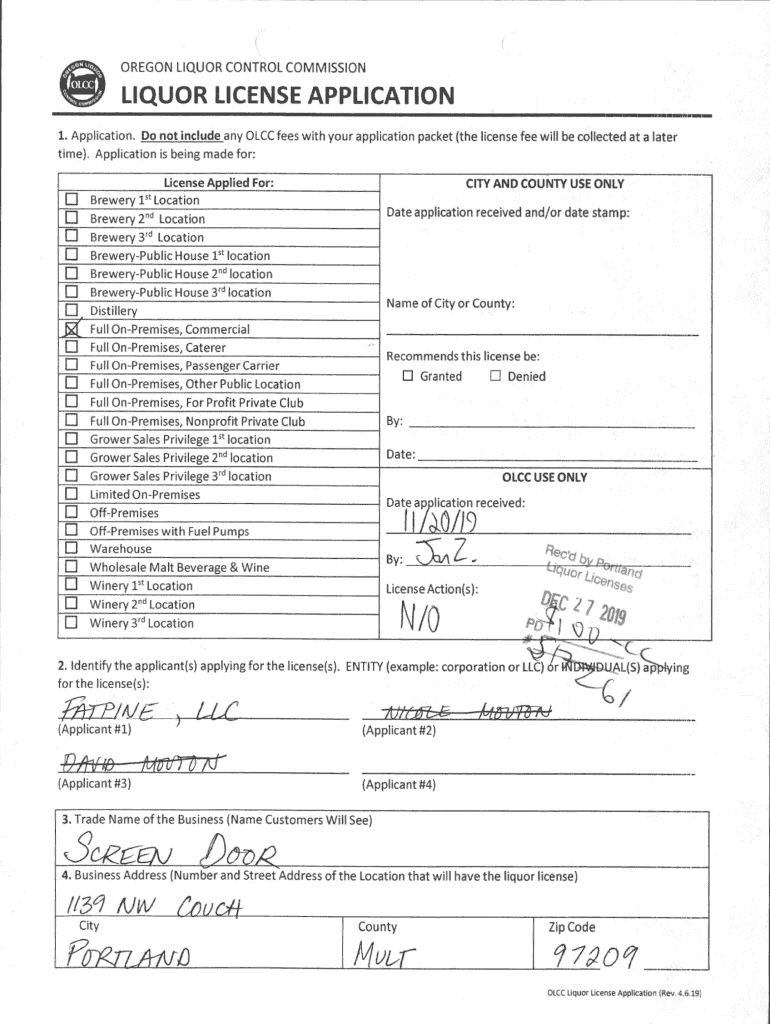 OREGON LIQUOR CONTROL COMMISSION
OREGON LIQUOR
OLCC
CONTROL COMMISSION
LIQUOR LICENSE APPLICATION
1. Application. Do not include any OLCC fees with your application packet (the license fee will be collected at a later
time). Application is being made for:
License Applied For:
Brewery 1st Location
Brewery 2nd Location
Brewery 3rd Location
Brewery-Public House 1st location
Brewery-Public House 2nd location
Brewery-Public House 3rd location
Distillery
Full On-Premises, Commercial
Full On-Premises, Caterer
Full On-Premises, Passenger Carrier
Full On-Premises, Other Public Location
Full On-Premises, For Profit Private Club
Full On-Premises, Nonprofit Private Club
Grower Sales Privilege 1st location
Grower Sales Privilege 2nd location
Grower Sales Privilege 3rd location
Limited On-Premises
Off-Premises
Off-Premises with Fuel Pumps
Warehouse
Wholesale Malt Beverage & Wine
Winery 1st Location
Winery 2nd Location
Winery 3rd Location
CITY AND COUNTY USE ONLY
Date application received and/or date stamp:
Name of City or County:
Recommends this license be:
Granted Denied
By:
Date:
OLCC USE ONLY
Date application received:
11/20/19
By: Jan Z.
Rec'd by Portland
Liquor Licenses
License Action(s):
DEC 27 2019
N/O
PD $100 - CC
261
2. Identify the applicant(s) applying for the license(s). ENTITY (example: corporation or LLC) or INDIVIDUAL(S) applying
for the license(s):
FATPINE, LLC NICOLE MOUTON
(Applicant #1) (Applicant #2)
DAVID MOUTON
(Applicant #3) (Applicant #4)
3. Trade Name of the Business (Name Customers Will See)
SCREEN DOOR
4. Business Address (Number and Street Address of the Location that will have the liquor license)
1139 NW COUCH
City County Zip Code
PORTLAND MULT 97209
OLCC Liquor License Application (Rev. 4.6.19)